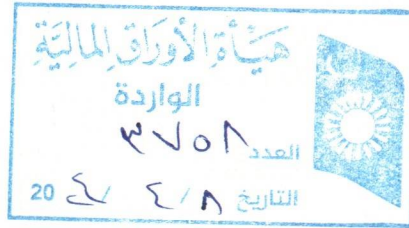 هيأة الأوراق المالية
الواردة
العدد ٣٧٥٨
التاريخ ٨/ ٤/ 20٢٤